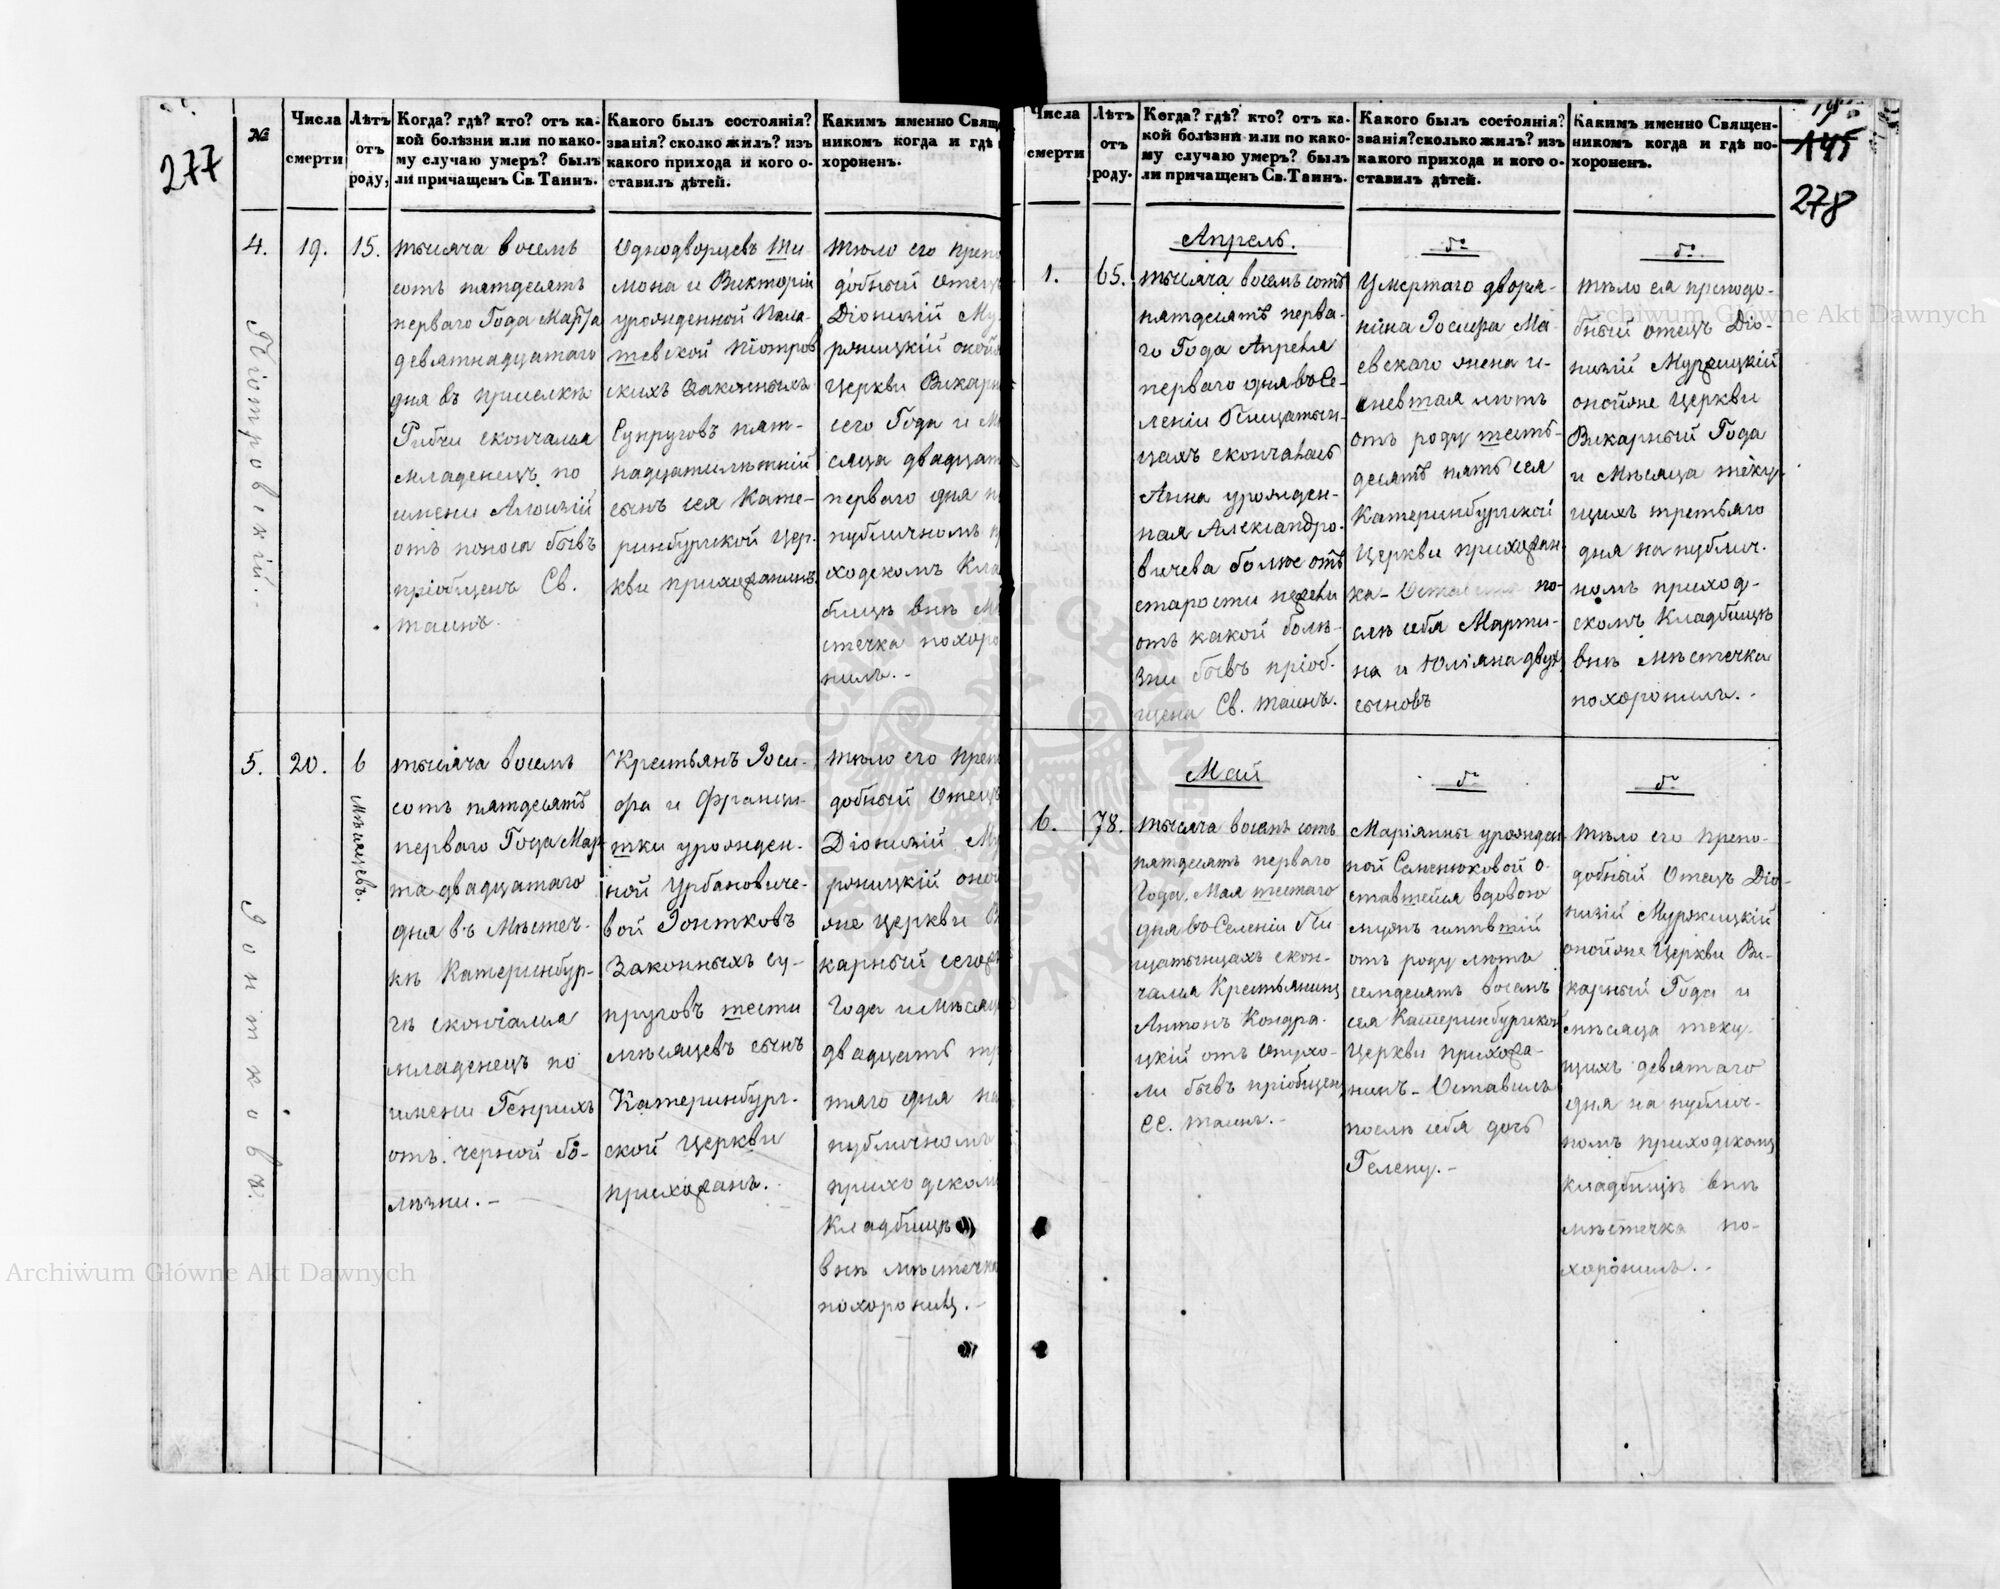 277
№
Числа
смерти
Лѣтъ
отъ
роду,
Когда? гдѣ? кто? отъ ка-
кой болѣзни или по како-
му случаю умеръ? былъ
ли причащенъ Св. Таинъ.
Какого былъ состоянія?
званія? сколко жилъ? изъ
какого прихода и кого о-
ставилъ дѣтей.
Какимъ именно Свящ
никомъ когда и гдѣ
хороненъ.
4.
Піотровскій.
19.
15.
тысяча восемь
сотъ пятдесятъ
перваго Года Марта
девятнадцатаго
дня въ приселкѣ
Рибчи скончался
младенецъ по
имени Алоизій
отъ поноса бывъ
пріобщенъ Св.
таинъ.
Однодворцевъ Ши-
мона и Викторіи
урожденной Пала-
шевской Піотров
скихъ законныхъ
Супруговъ пят-
надцатилѣтній
сынъ сея Кате-
ринбургской Цер-
кви прихожанинъ
тѣло его преп
добный Отецъ
Діонизій Му
ряницкій оной
Церкви Викарн
сего Года и Мѣ
сяца двадцат
перваго дня н
публичномъ п
ходскомъ Кла
бищѣ внѣ Мѣ
стечка похоро
нилъ. -
5.
Зонтковъ.
20.
6
Мѣсяцевъ.
тысяча восемь
сотъ пятдесятъ
перваго Года Мар
та двадцатаго
дня въ Мѣстеч-
кѣ Катеринбур-
гѣ скончался
младенецъ по
имени Генрихъ
отъ черной бо-
лѣзни. -
Крестьянъ Іоси-
фа и Францы-
шки урожден-
ной Урбановиче-
вой Зонтковъ
Законныхъ су-
пруговъ шести
мѣсяцевъ сынъ
Катеринбург-
ской Церкви
прихожанъ.
тѣло его преп
добный Отецъ
Діонизій Му
ряницкій оной
же Церкви В
карный сегожъ
Года и мѣсяц
двадцать тр
тяго дня на
публичномъ
приходском
Кладбищѣ
внѣ мѣстечка
похоронилъ. -
Числа
смерти
Лѣтъ
отъ
роду.
Когда? гдѣ? кто? отъ ка-
кой болѣзни или по како-
му случаю умеръ? былъ
ли причащенъ Св. Таинъ.
Какого былъ состоянія?
званія? сколько жилъ? изъ
какого прихода и кого о-
ставилъ дѣтей.
Какимъ именно Священ-
никомъ когда и гдѣ по-
хороненъ.
145
278
1.
65.
Апрель.
тысяча восемь сотъ
пятдесятъ перва-
го Года Апреля
перваго дня въ Се-
леніи Пищатын-
цахъ скончалась
Анна урожден-
ная Александро-
вичева болѣе отъ
старости нежели
отъ какой болѣ-
зни бывъ пріоб-
щена Св. таинъ.
до
Умершаго дворя-
нина Іосифа Ма-
евскаго жена и-
мевшая лѣтъ
отъ роду шесть-
десятъ пять сея
Катеринбургской
Церкви прихожан-
ка- Оставила по-
слѣ себя Марти-
на и Юліяна двух
сыновъ
до
тѣло ея преподо-
бный отецъ Діо-
низій Муряницкій
онойже Церкви
Викарный Года
и Мѣсяца теку-
щихъ третьяго
дня на публич-
номъ приход-
скомъ Кладбищѣ
внѣ мѣстечка
похоронилъ. -
6.
78.
Май
тысяча восемь сотъ
пятдесятъ перваго
Года Мая шестаго
дня въ Селеніи Пи
щатынцахъ скон-
чался Крестьянинъ
Антонъ Кондра-
цкій отъ опухо-
ли бывъ пріобщенъ
СС. таинъ. -
до
Маріянны урожден
ной Семенюковой о-
ставшейся вдовою
мужъ имѣвшій
отъ роду лѣтъ
семдесятъ восемь
сея Катеринбургской
Церкви прихожа-
нинъ- Оставилъ
послѣ себя дочь
Гелену. -
до
тѣло его препо-
добный Отецъ Діо-
низій Муряницкій
онойже Церкви Ви-
карный Года и
мѣсяца теку-
щихъ девятаго
дня на публич-
номъ приходскомъ
кладбищѣ внѣ
мѣстечка по-
хоронилъ. -
Archiwum Główne Akt Dawnych
Archiwum Główne Akt Dawnych